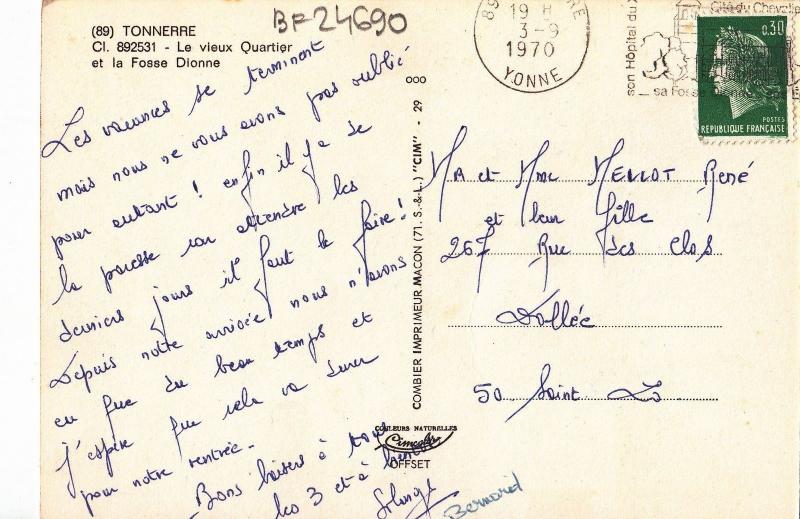 BF24690
(89) TONNERRE
Cl. 892531 - Le vieux Quartier
et la Fosse Dionne
Les vacances se terminent
mais nous ne vous avons pas oublié
pour autant ! enfin il y a de
la paresse car attendre les
derniers jours il faut le faire !
Depuis notre arrivée nous n'avons
eu que du beau temps et
j'espère que cela va durer
pour notre rentrée -
Bons baisers à tous
les 3 et à bientôt
Solange
Bernard
COMBIER IMPRIMEUR MACON (71. S.-&-L.) "CIM" - 29
COULEURS NATURELLES
Cimcolor
OFFSET
19 H
3-9
1970
YONNE
son Hôpital du
Cité du Chevalie
sa Fosse
0,30
POSTES
REPUBLIQUE FRANÇAISE
Mr et Mme MELLOT René
et leur fille
267 Rue des Clos
Vallée
50 Saint Lo